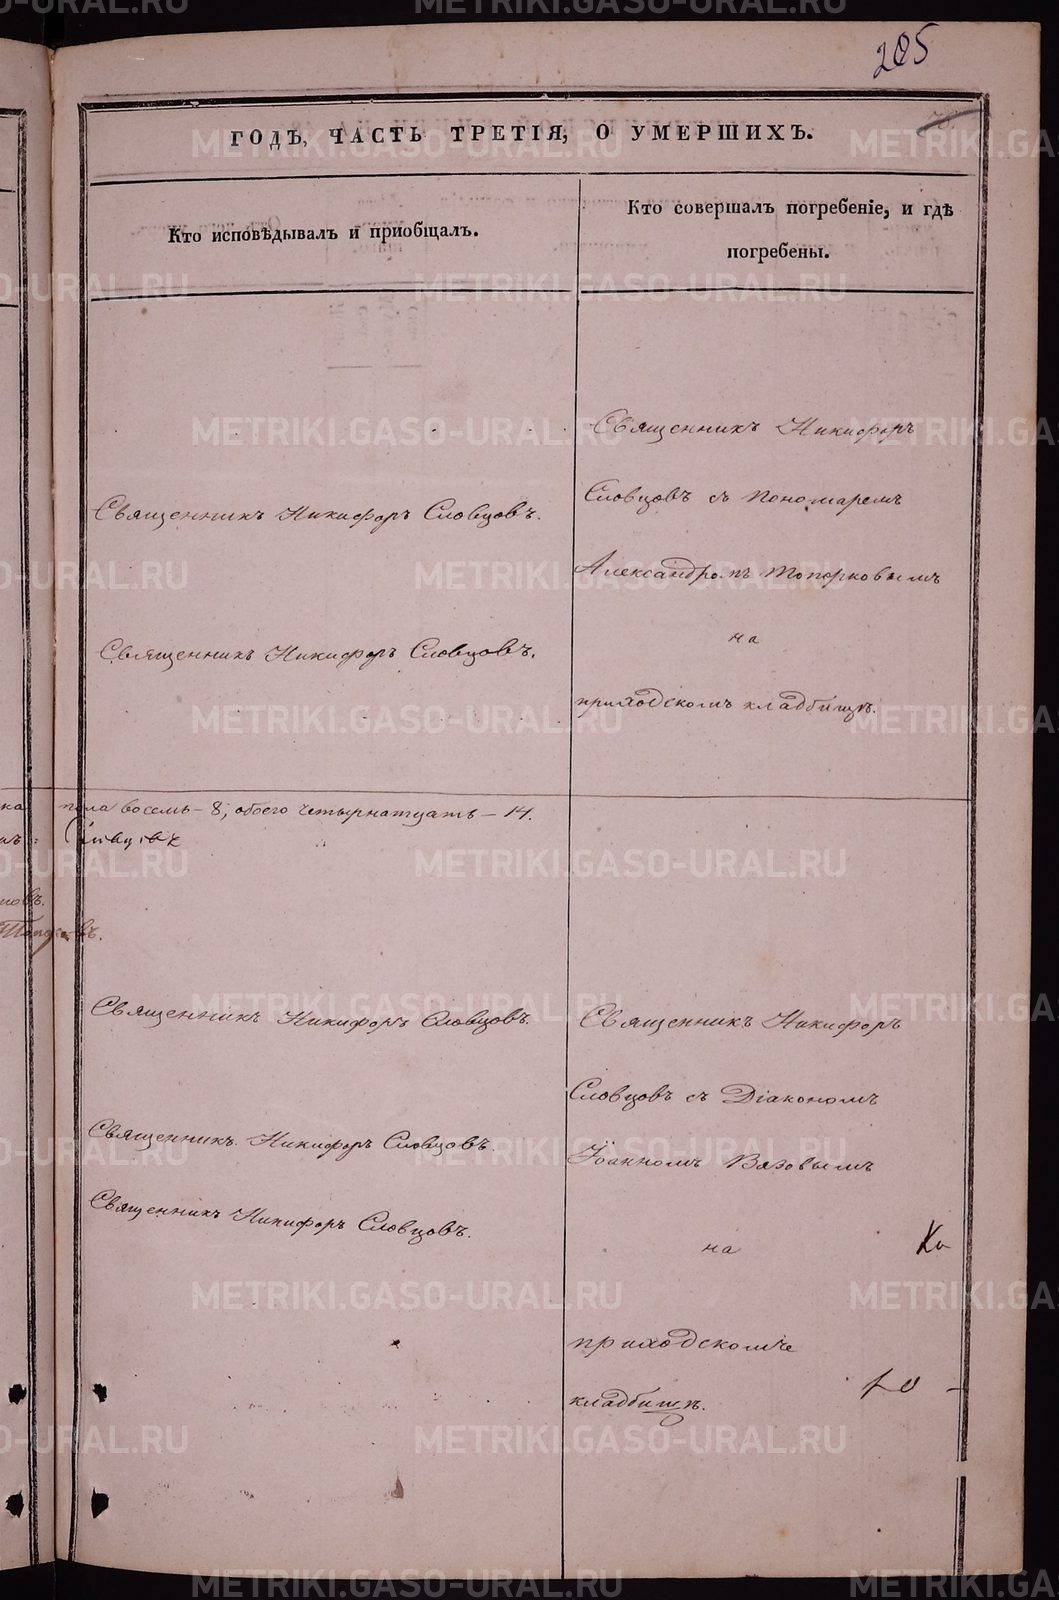 205
ГОДЪ, ЧАСТЬ ТРЕТІЯ, О УМЕРШИХЪ.
Кто исповѣдывалъ и пріобщалъ.
Кто совершалъ погребеніе, и гдѣ
погребены.
Священникъ Никифоръ Словцовъ.
Священникъ Никифоръ Словцовъ.
Священникъ Никифоръ
Словцовъ съ Пономаремъ
Александромъ Топорковымъ
на
приходскомъ кладбищѣ.
пола восемь – 8, обоего четырнатцать – 14.
Словцовъ
Священникъ Никифоръ Словцовъ.
Священникъ Никифоръ Словцовъ.
Священникъ Никифоръ Словцовъ.
Священникъ Никифоръ
Словцовъ съ Діакономъ
Іоанномъ Вязовымъ
на
приходскомъ
кладбищѣ.
METRIKI.GASO-URAL.RU